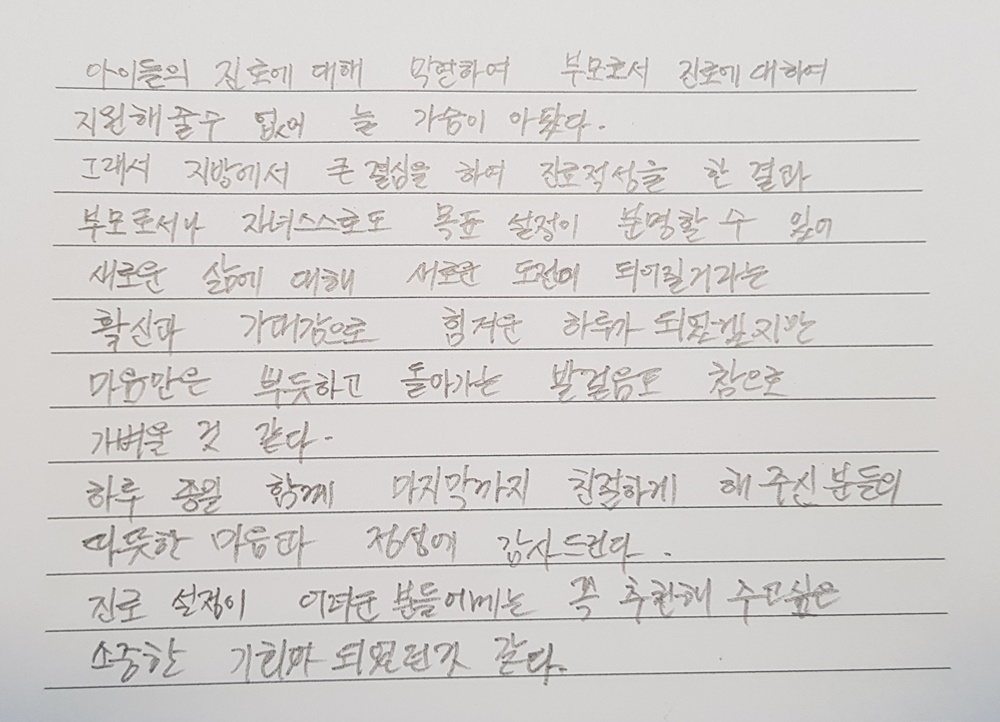 아이들의 진로에 대해 막연하여 부모로서 진로에 대하여
지원해줄수 없어 늘 가슴이 아팠다.
그래서 지방에서 큰결심을 하여 진로적성을 한 결과
부모로서나 자녀스스로도 목표 설정이 분명할 수 있어
새로운 삶에 대해 새로운 도전이 되어질거라는
확신과 기대감으로 힘겨운 하루가 되었겠지만
마음만은 뿌듯하고 돌아가는 발걸음도 참으로
가벼울 것 같다.
하루 종일 함께 마지막까지 친절하게 해 주신분들의
따뜻한 마음과 정성에 감사드린다.
진로 설정이 어려운 분들에게는 꼭 추천해 주고싶은
소중한 기회가 되었던것 같다.